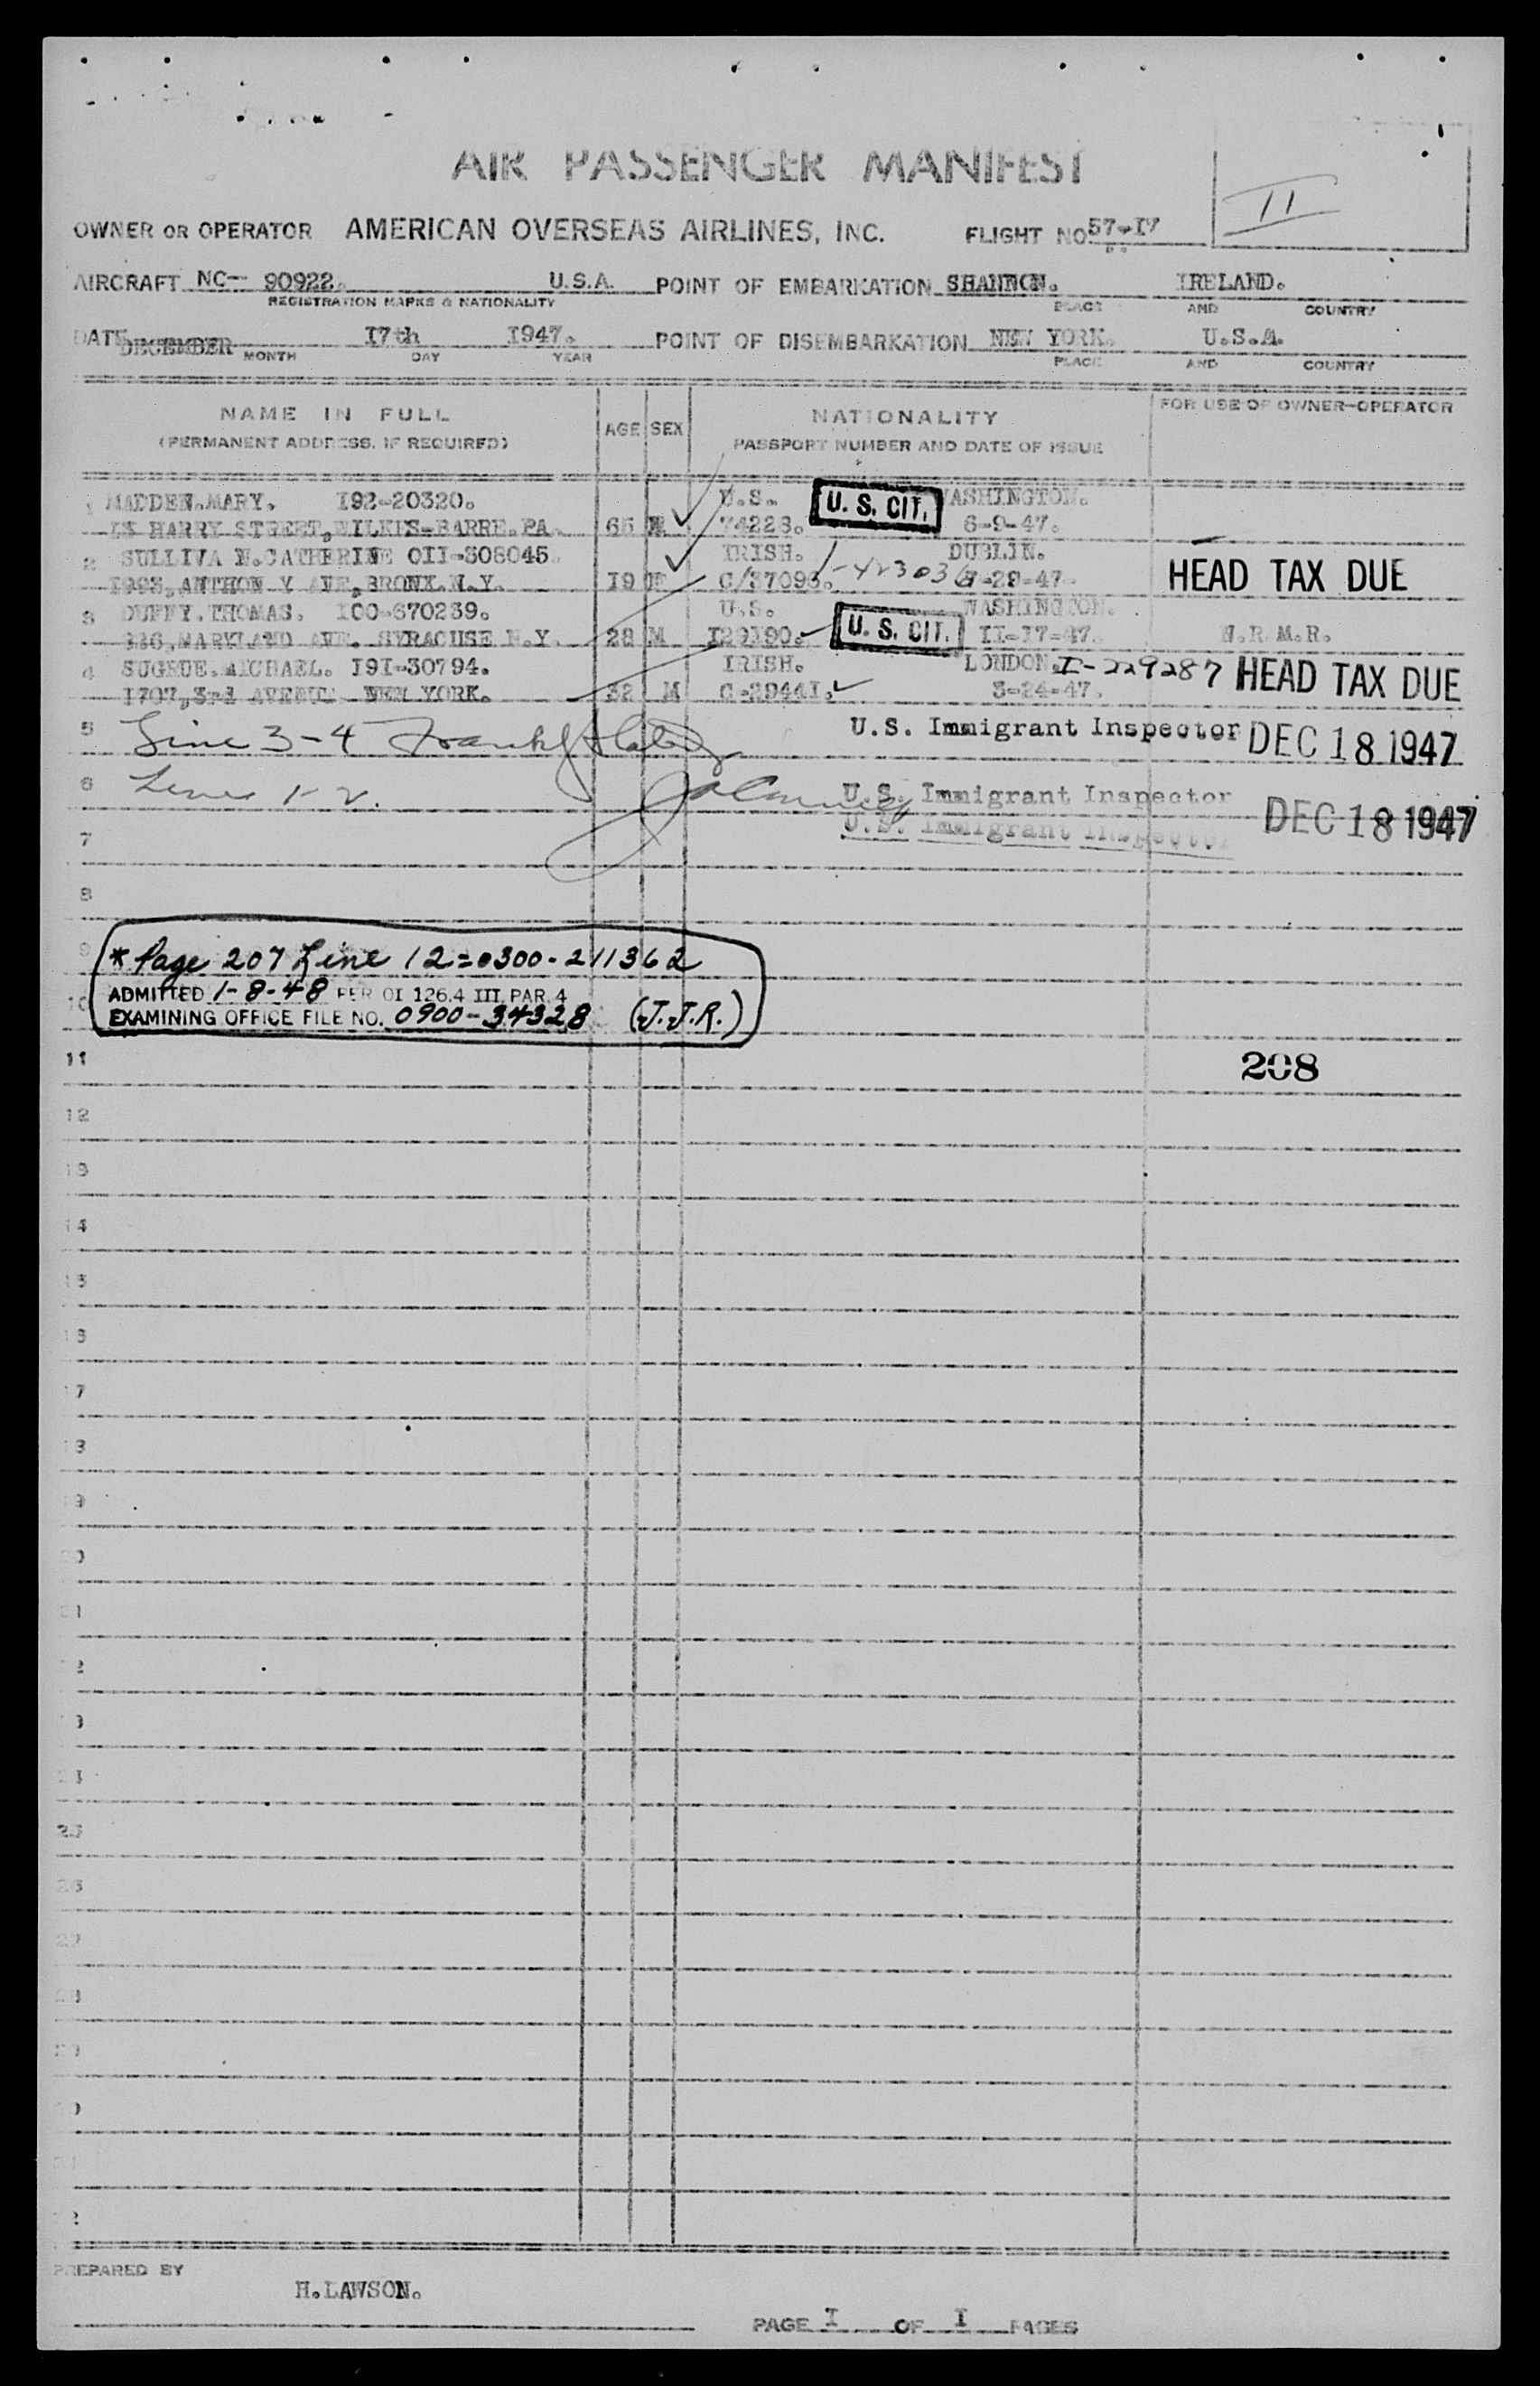 AIR PASSENGER MANIFEST
11
OWNER OR OPERATOR AMERICAN OVERSEAS AIRLINES, INC. FLIGHT NO 57-I7
AIRCRAFT NC- 90922. U.S.A. POINT OF EMBARKATION SHANNON. IRELAND.
REGISTRATION MARKS & NATIONALITY PLACE AND COUNTRY
DATE DECEMBER I7th I947. POINT OF DISEMBARKATION NEW YORK. U.S.A.
MONTH DAY YEAR PLACE AND COUNTRY
NAME IN FULL AGE SEX NATIONALITY FOR USE OF OWNER-OPERATOR
(PERMANENT ADDRESS, IF REQUIRED) PASSPORT NUMBER AND DATE OF ISSUE
1 MADDEN.MARY. I92-20320. U.S. U. S. CIT. WASHINGTON.
HARRY STREET, WILKES-BARRE.PA. 65 74228. 6-9-47.
2 SULLIVA N.CATHERINE OII-308045. IRISH. DUBLIN. HEAD TAX DUE
ANTHON Y AVE, BRONX.N.Y. I9 C/37093. -29-47.
3 DUFFY.THOMAS. I00-670239. U.S. WASHINGTON.
MARYLAND AVE. SYRACUSE N.Y. 28 M I29I90. U. S. CIT. II-I7-47. N.R.M.R.
4 SUGRUE.MICHAEL. I9I-30794. IRISH. LONDON. I-229287 HEAD TAX DUE
I707, 3rd AVENUE NEW YORK. 32 M C-2944I. 3-24-47.
5 Line 3-4 U.S. Immigrant Inspector DEC 18 1947
6 Lines 1-2. U.S. Immigrant Inspector DEC 18 1947
U.S. Immigrant Inspector
7
8
9 * Page 207 Line 12=0300-211362
10 ADMITTED 1-8-48 PER OI 126.4 III, PAR. 4
EXAMINING OFFICE FILE NO. 0900-34328 (J.J.R.)
11 208
12
13
14
15
16
17
18
19
25
26
27
PREPARED BY
H.LAWSON.
PAGE I OF I PAGES